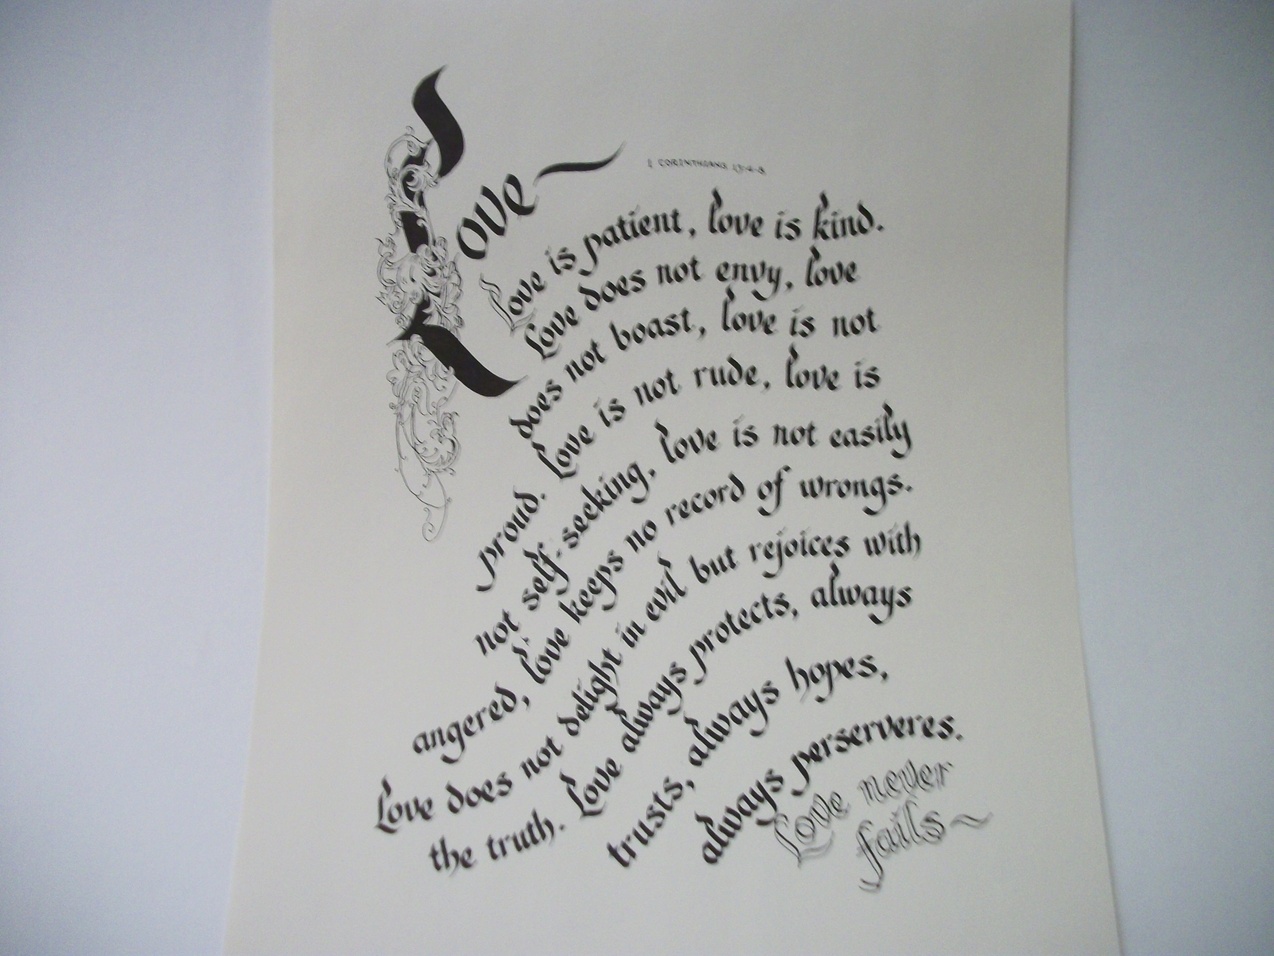 Love
1 CORINTHIANS 13:4-8
Love is patient, love is kind.
Love does not envy, love
does not boast, love is not
proud. Love is not rude, love is
not self-seeking, love is not easily
angered, love keeps no record of wrongs.
Love does not delight in evil but rejoices with
the truth. Love always protects, always
trusts, always hopes,
always perserveres.
Love never
fails